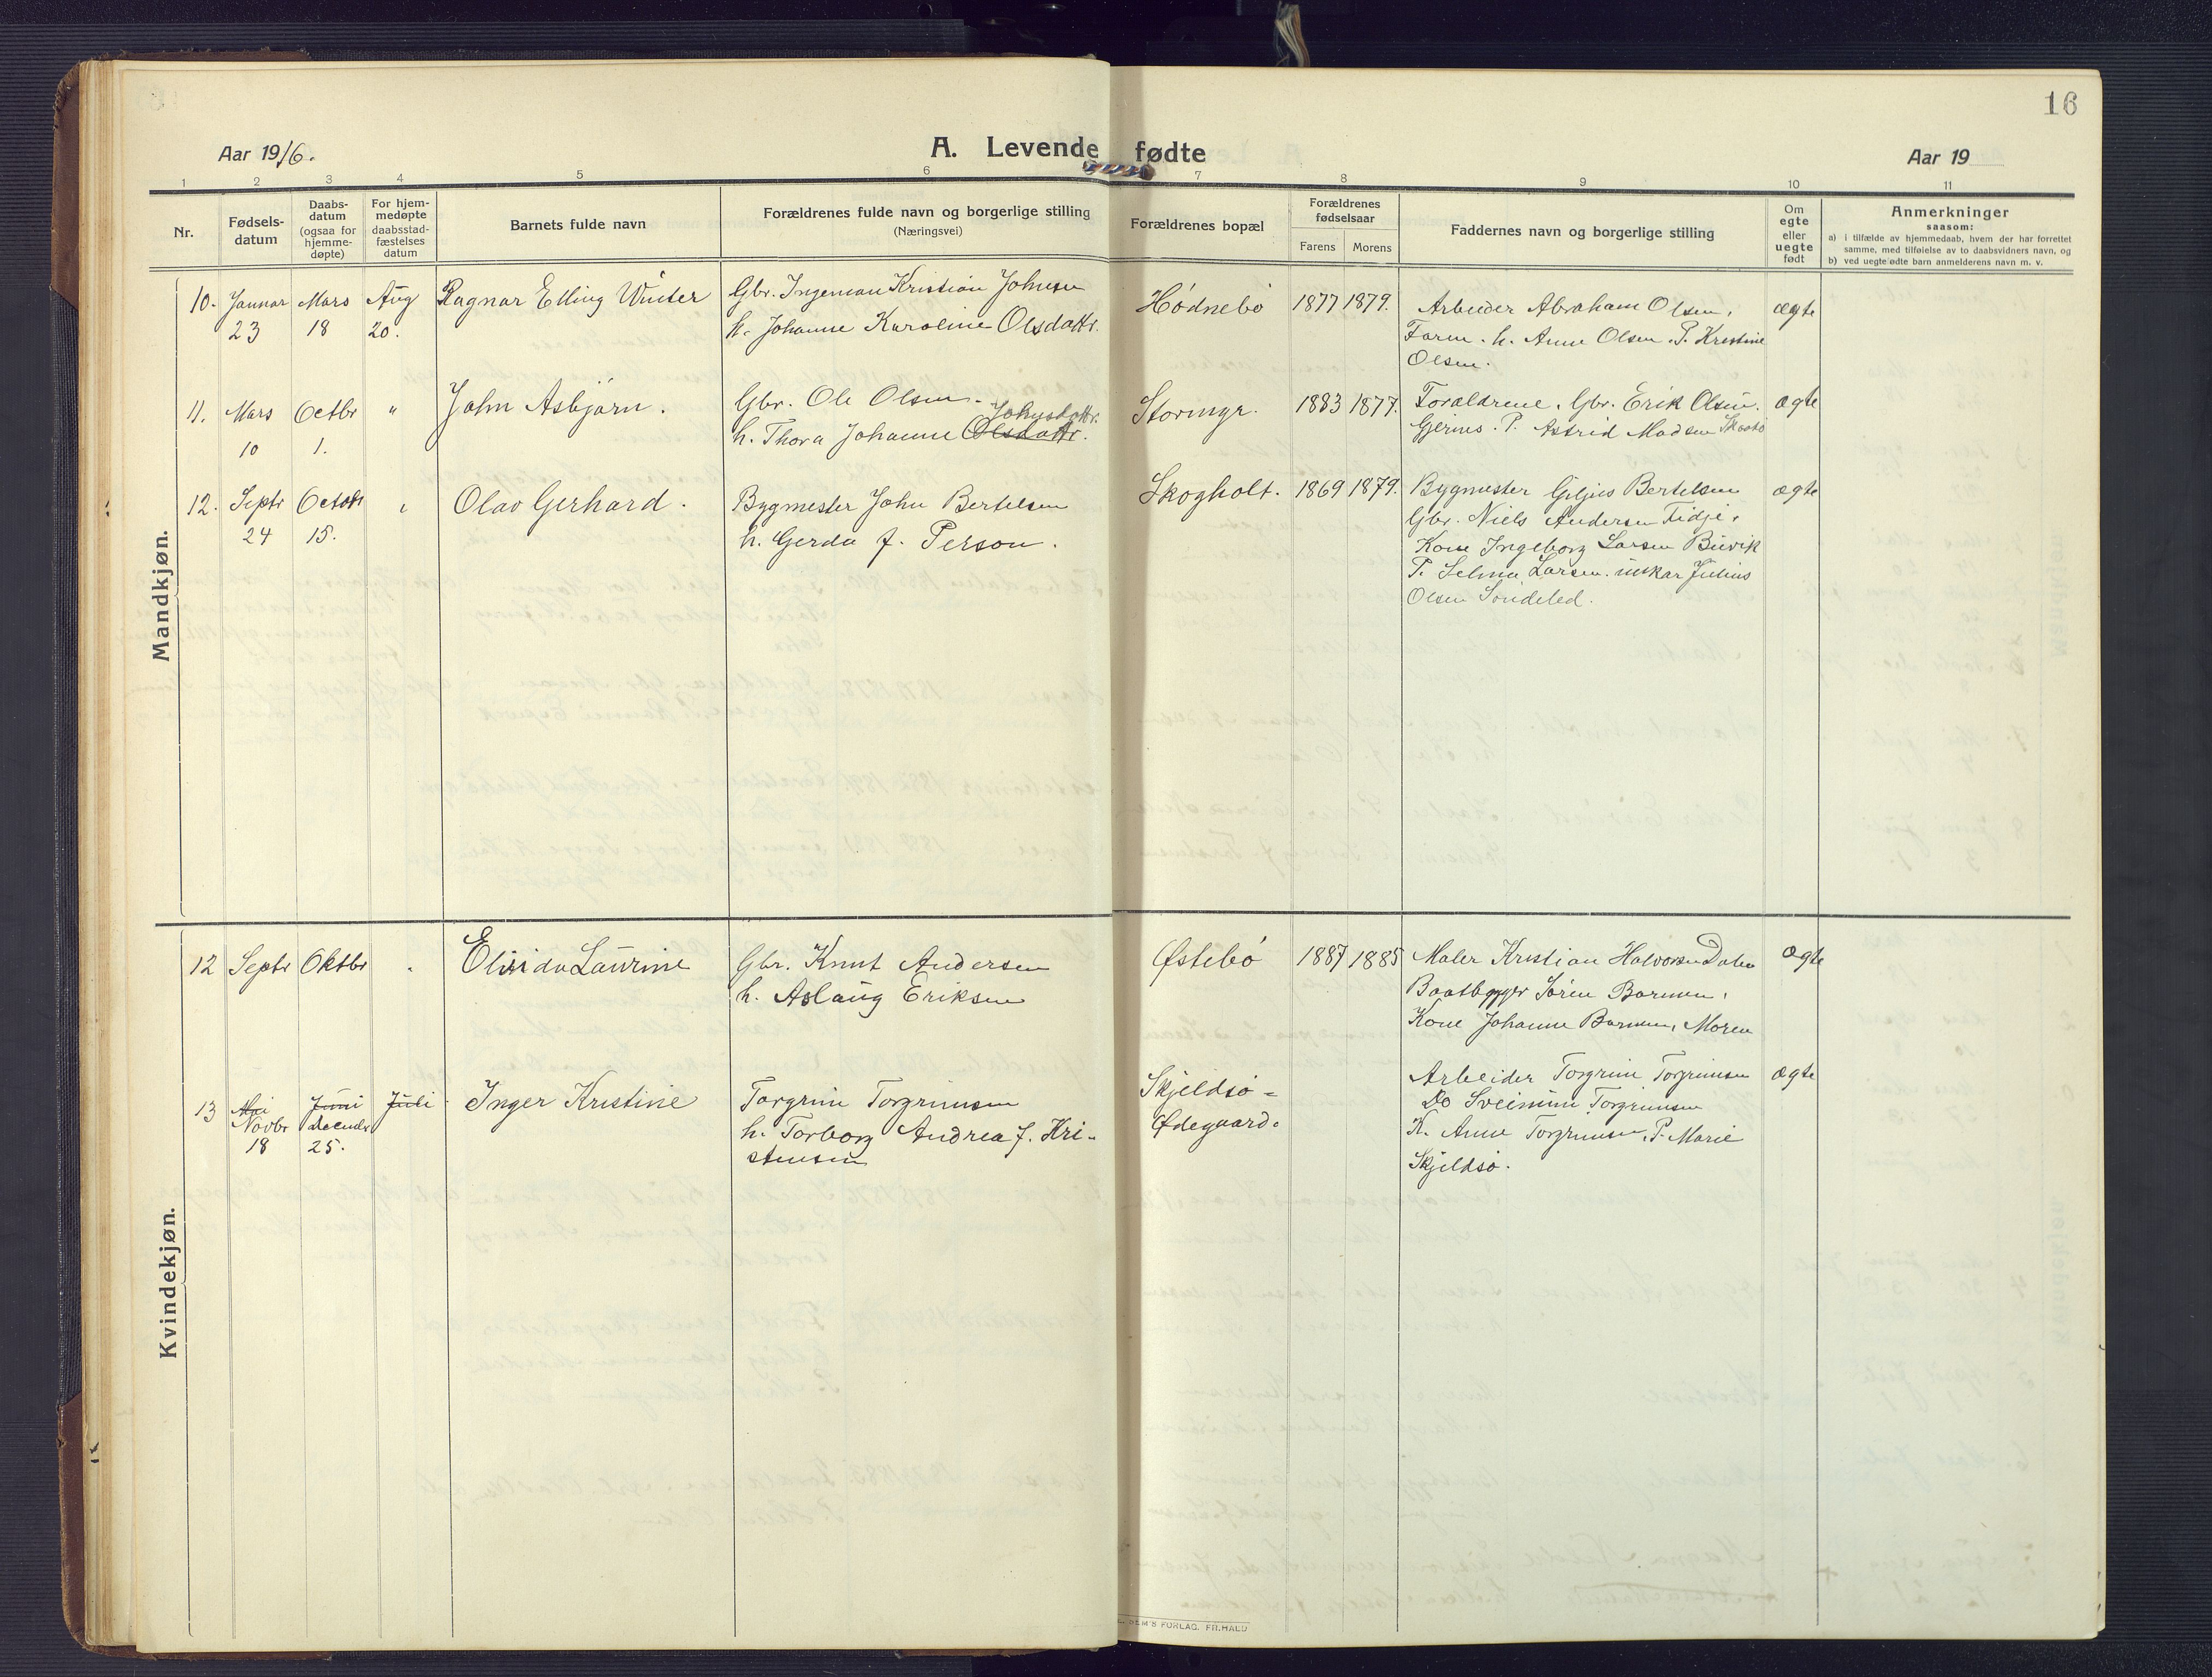 16
Aar 1916.
A. Levende fødte
Aar 19
1 2 3 4 5 6 7 8 9 10 11
Nr.
Fødsels-
datum
Daabs-
datum
(ogsaa for
hjemme-
døpte)
For hjem-
medøpte
daabsstad-
fæstelses
datum
Barnets fulde navn
Forældrenes fulde navn og borgerlige stilling
(Næringsvei)
Forældrenes bopæl
Forældrenes
fødselsaar
Farens Morens
Faddernes navn og borgerlige stilling
Om
egte
eller
uegte
født
Anmerkninger
saasom:
a) i tilfælde av hjemmedaab, hvem der har forrettet
samme, med tilføielse av to daabsvidners navn, og
b) ved uegte fødte barn anmelderens navn m. v.
Mandkjøn.
10.
Januar
23
Mars
18
Aug
20.
Ragnar Elling Winter
Gbr. Ingeman Kristian Johnsen
h. Johanne Karoline Olsdattr.
Hødnebø
1877 1879.
Arbeider Abraham Olsen,
Farm. h. Anne Olsen. P. Kristine
Olsen.
ægte
11.
Mars
10
Octbr
1.
"
John Asbjørn.
Gbr. Ole Olsen.
Johnsdattr.
h. Thora Johanne Olsdattr.
Stormyr.
1883 1877.
Forældrene. Gbr. Erik Olsen.
P. Astrid Madsen
ægte
12.
Septr
24
Octobr
15.
"
Olav Gerhard.
Bygmester John Bertelsen
h. Gerda f. Person.
Skogholt.
1869 1879.
Bygmester Bertelsen
Gbr. Niels Andersen Fidje.
Kone Ingeborg Larsen
P. Selma Larsen. unkar Julius
Olsen Søndeled.
ægte
Kvindekjøn.
12
Septr
Oktbr
"
Elvida Laurine
Gbr. Knut Andersen
h. Aslaug Eriksen
Østebø
1887 1885
Maler Kristian Halvorsen Dalen
Baatbygger Søren Barmen,
Kone Johanne Barmen, Moren
ægte
13
Mai
Novbr
18
Juni
Decembr
25.
Juli
Inger Kristine
Torgrim Torgrimsen
h. Torborg Andrea f. Kri-
stensen
Skjeldsø =
Ødegaard.
Arbeider Torgrim Torgrimsen
Do Sveinun Torgrimsen
K. Anne Torgrimsen, P. Marie
Skjeldsø.
ægte
SEM'S FORLAG. FR.HALD